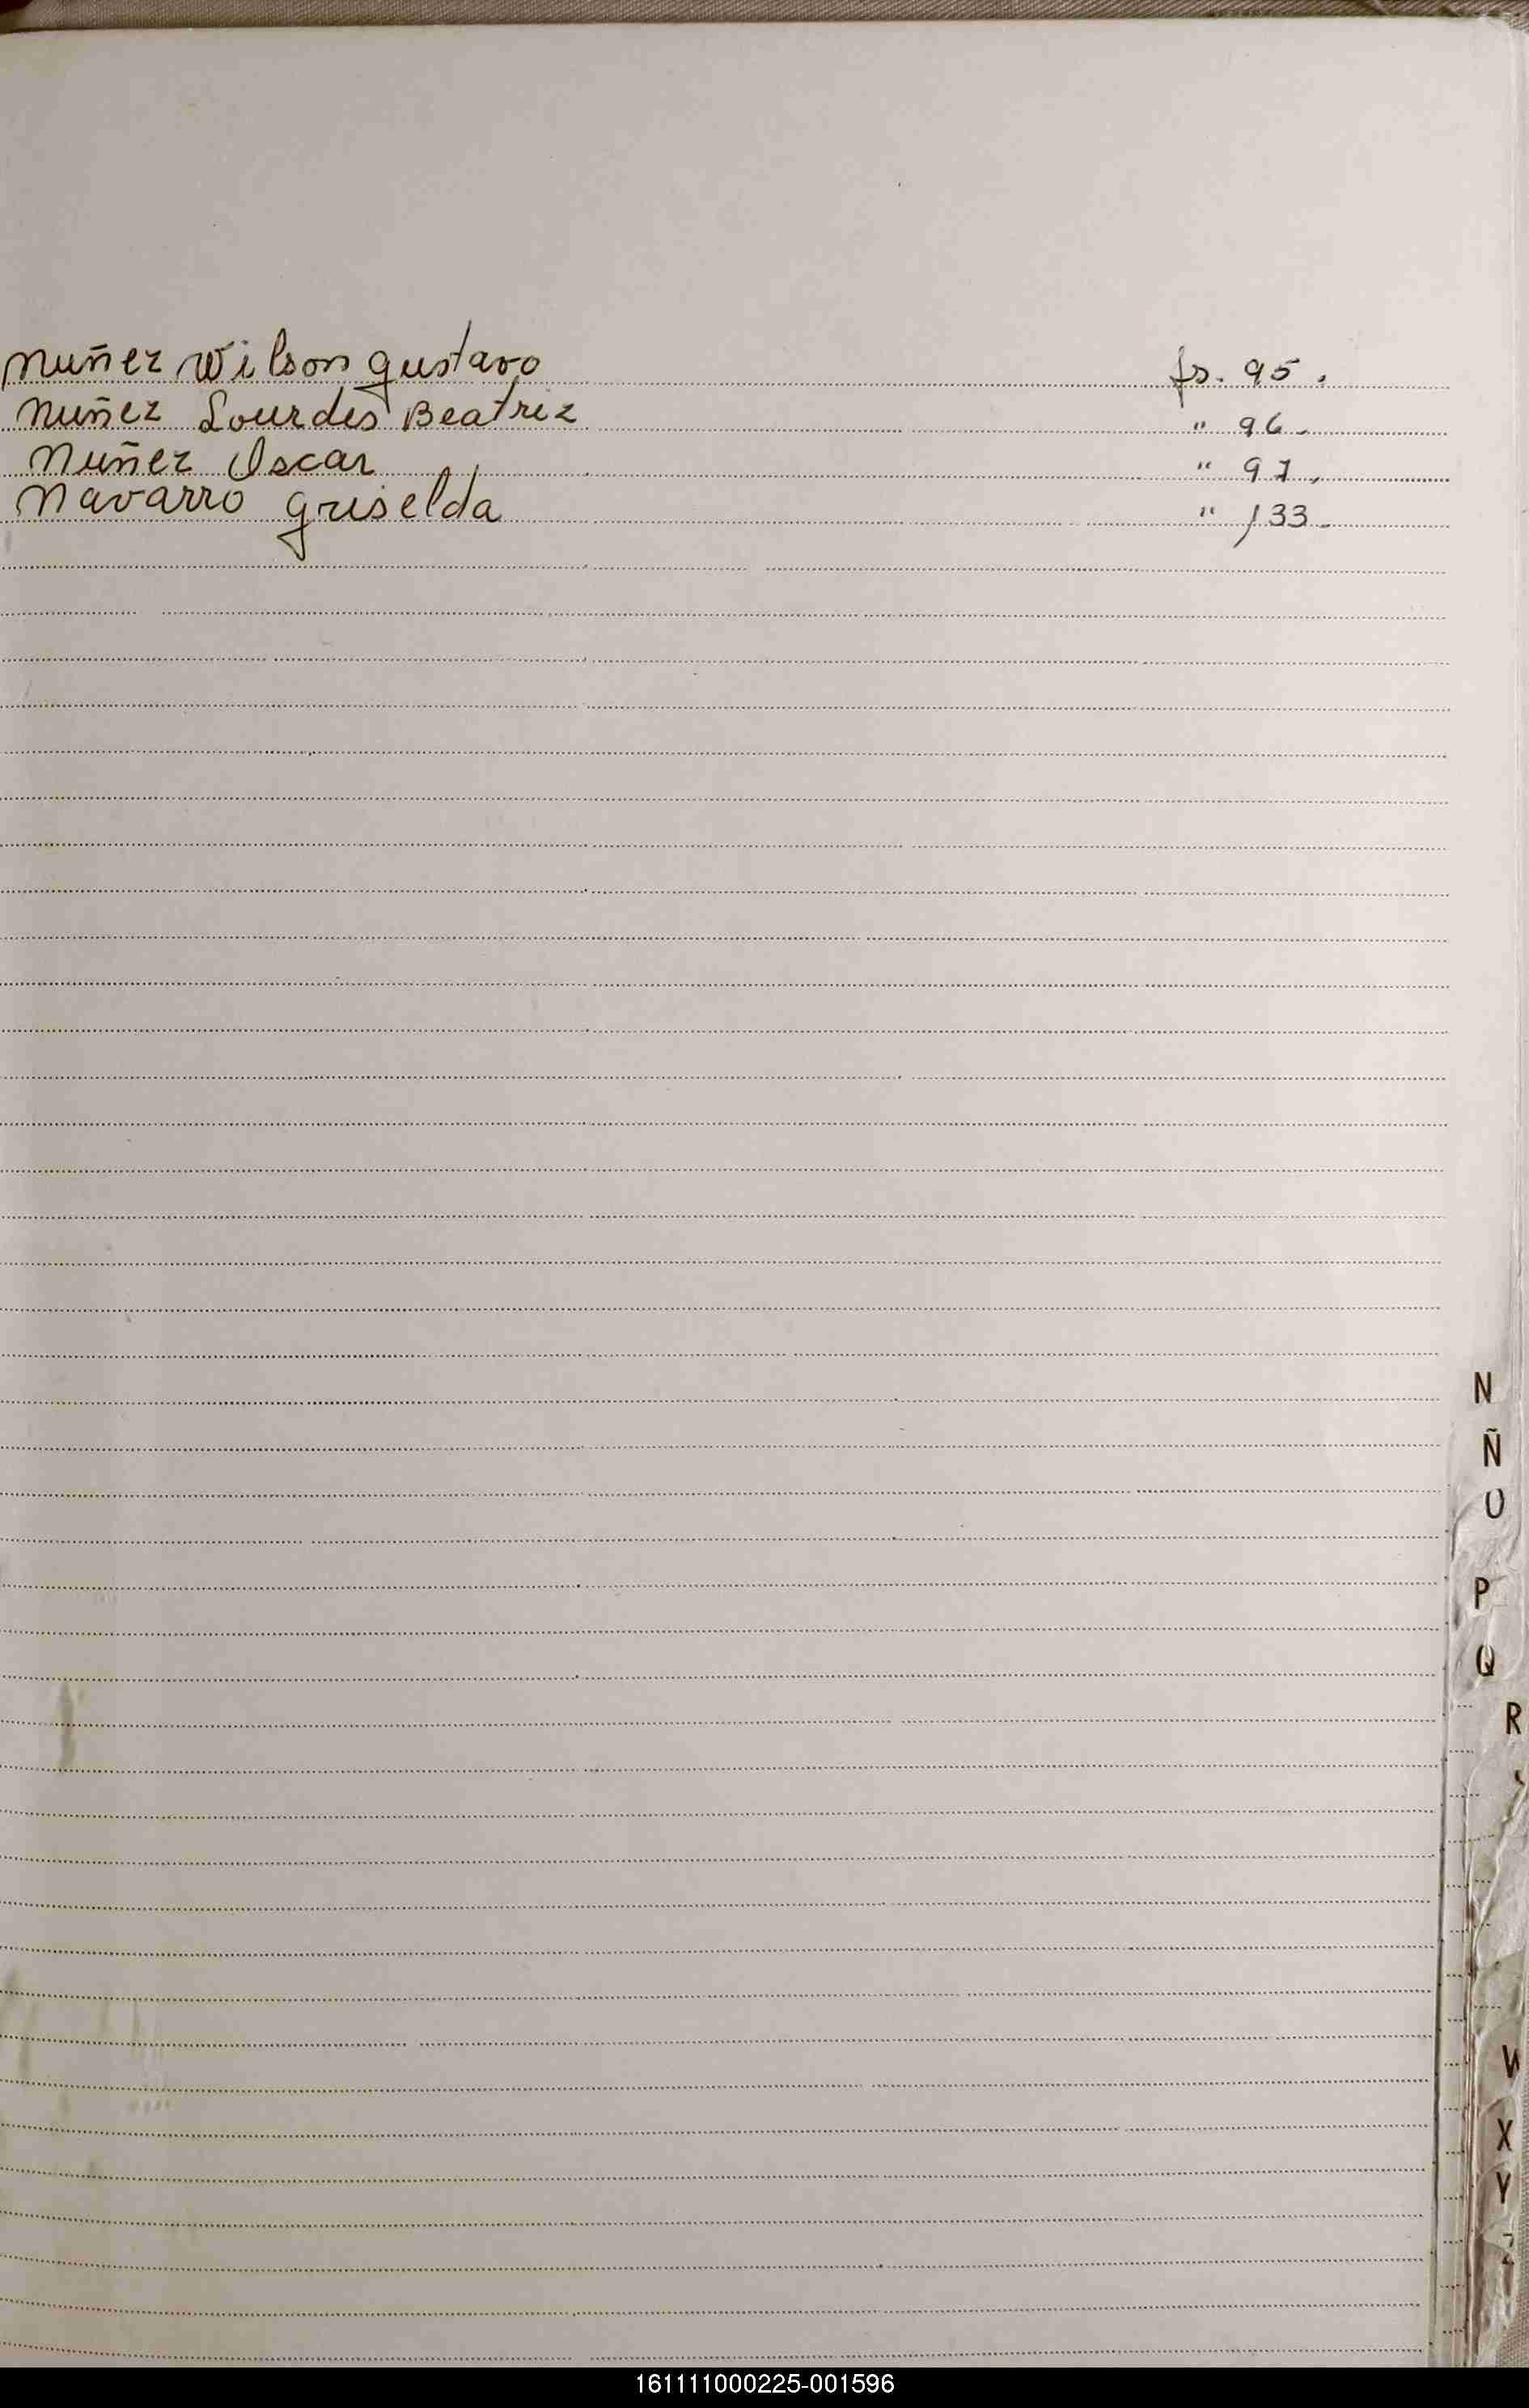 Nuñez Wilson Gustavo fs. 95.
Nuñez Lourdes Beatriz " 96.
Nuñez Oscar " 97.
Navarro Griselda " 133.
N
Ñ
O
P
Q
R
W
X
Y
Z
161111000225-001596